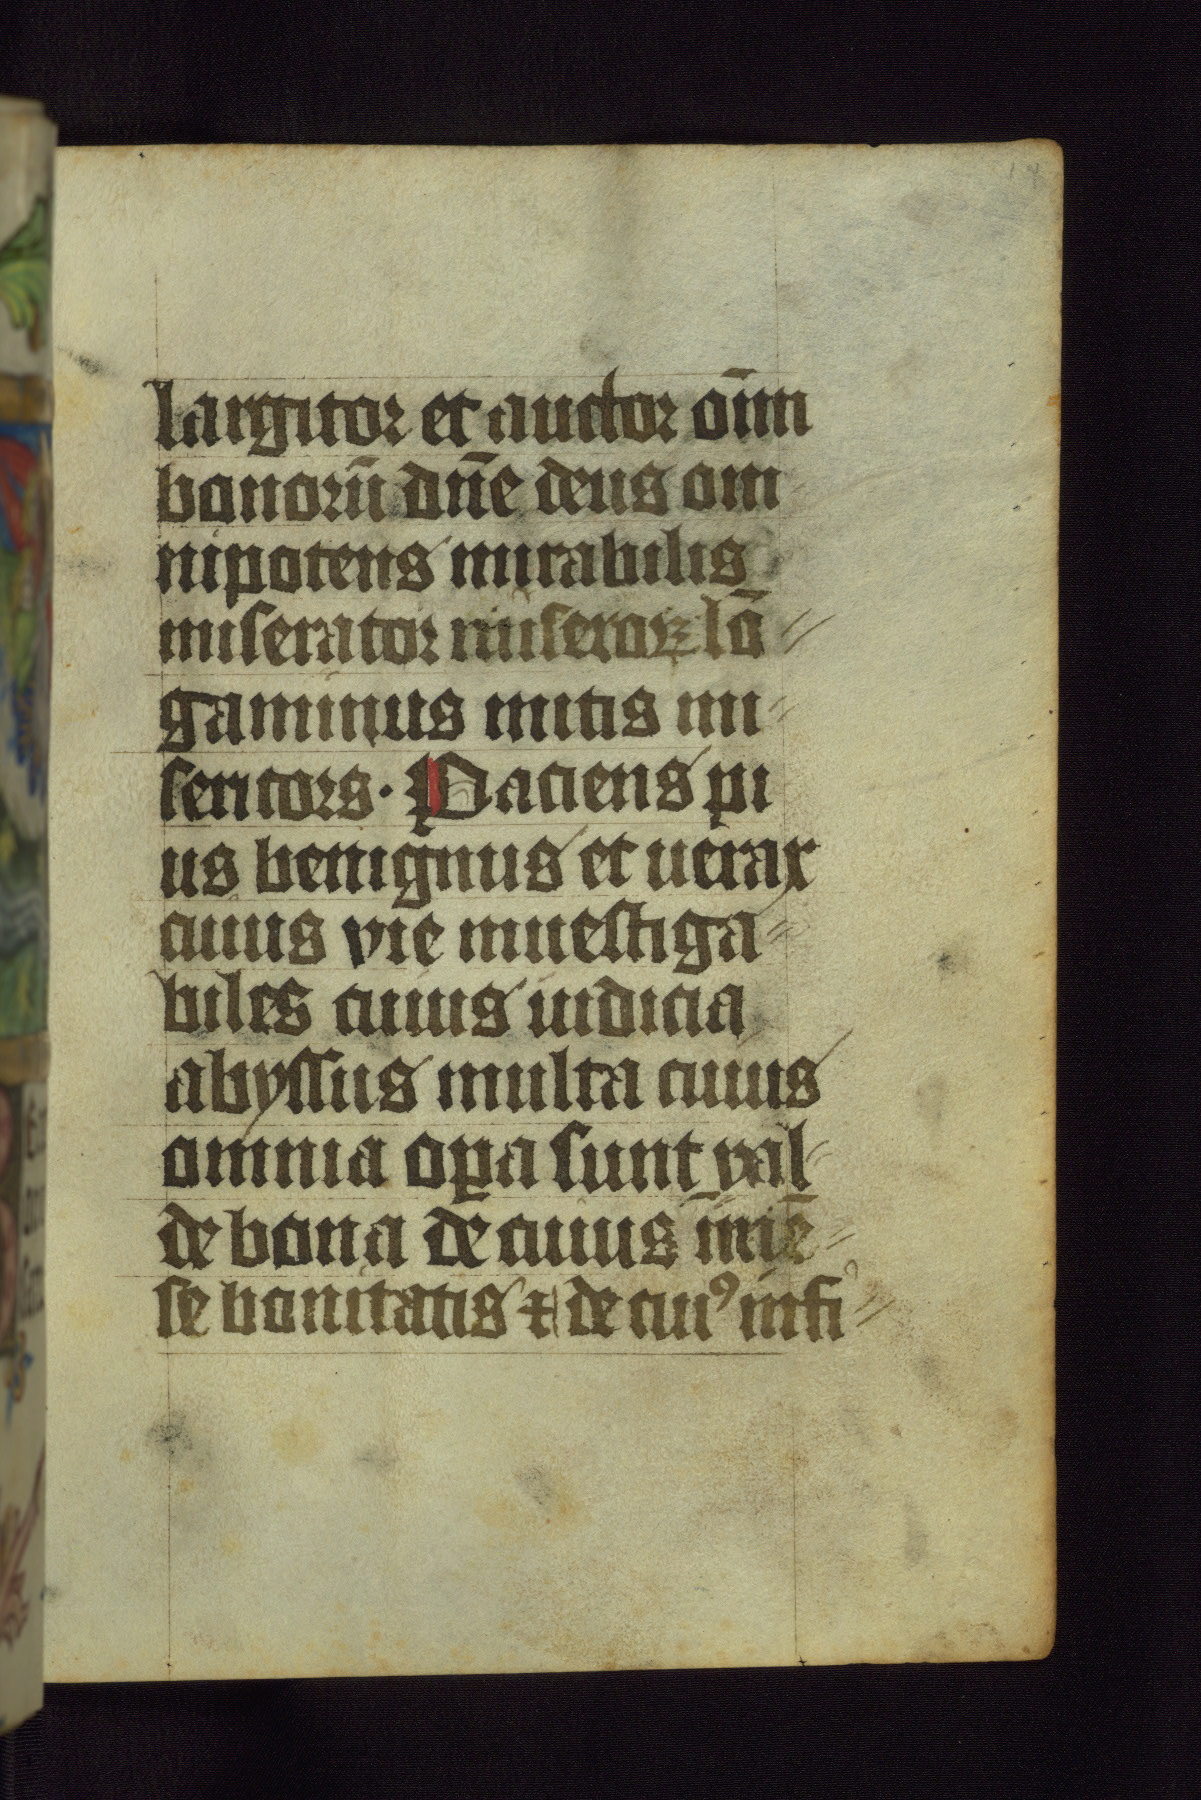 largitor et auctor oīm
bonorū dn̄e deus om
nipotens mirabilis
miserator miseroꝝ lō
ganimus mitis mi
sericors. Paciens pi
us benignus et uerax
cuius vie inuestiga
biles cuius iudicia
abyssus multa cuius
omnia oꝑa sunt val
de bona de cuius īmē
se bonitatis ⁊ de cuiꝰ infi